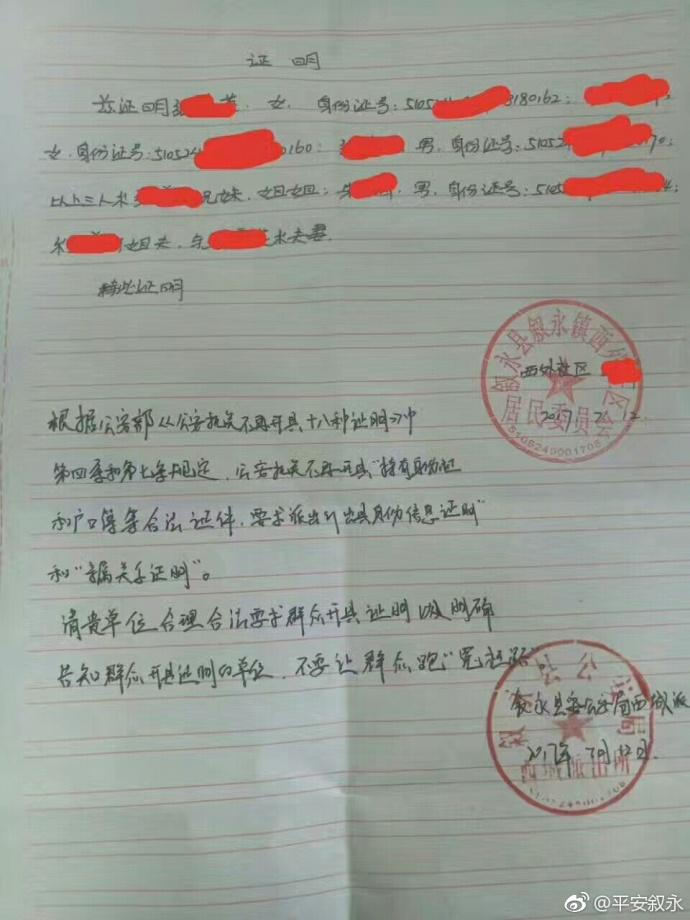 证明
兹证明 女,身份证号:5105 3180162;
女,身份证号:510524 0160; 男,身份证号:51052 70;
以上三人系 兄妹、姐姐; 男,身份证号:5105 4;
系 姐夫,与 系夫妻.
特此证明
叙永县叙永镇西外社区
居民委员会
西外社区
2017
根据公安部《公安机关不再开具十八种证明》中
第四条和第七条规定,公安机关不再开具"持有身份证
和户口簿等合法证件,要求派出所出具身份信息证明"
和"亲属关系证明"。
请贵单位合理合法要求群众开具证明以及明确
告知群众开具证明的单位,不要让群众跑"冤枉路"
叙永县公安局西城派
2017年 月12日.
叙永县公安局
西城派出所
@平安叙永